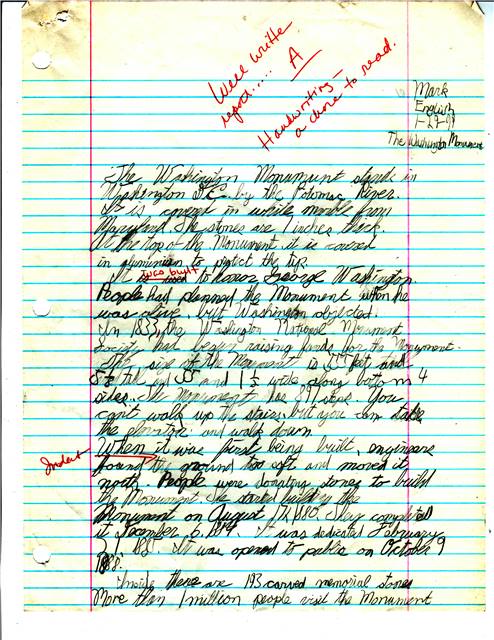 Well written
report.....
A
Handwriting –
a chore to read.
Mark
English
1-29-
The Washington Monument
The Washington Monument stands in
Washington D.C. by the Potomac River.
It is covered in white marble from
Maryland. The stones are 7 inches thick.
At the top of the Monument it is covered
in aluminium to protect the tip.
was built
It to honor George Washington.
People had planned the Monument when he
was alive, but Washington objected.
In 1833, the Washington National Monument
Society had begun raising funds for the Monument.
The size of the Monument is feet and
tall and 55 and 1 1/2 wide along bottom 4
sides. The Monument has 897 steps. You
can't walk up the stairs, but you can take
the elevator and walk down.
Indent
When it was first being built, engineers
found the ground too soft and moved it
north. People were donating stones to build
the Monument. started building the
Monument on August 17, 1880. They completed
it December 6, 1884. It was dedicated February
It was opened to public on October 9
1888.
Inside there are 193 carved memorial stones
More than 1 million people visit the Monument